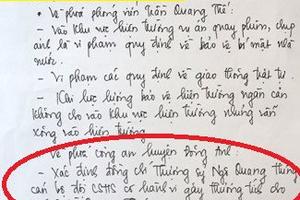 • Về phía phóng viên Trần Quang Thế:
- Vào khu vực hiện trường vụ án quay phim, chụp
ảnh là vi phạm quy định về bảo vệ bí mật nhà
nước.
- Vi phạm các quy định về giao thông trật tự.
- Khi lực lượng bảo vệ hiện trường ngăn cản
không cho vào khu vực hiện trường nhưng vẫn
xông vào hiện trường.
Về phía công an huyện Đông Anh:
- Xác định đồng chí Thượng sỹ Ngô Quang Hưng
cán bộ đội CSHS có hành vi gây thương tích cho